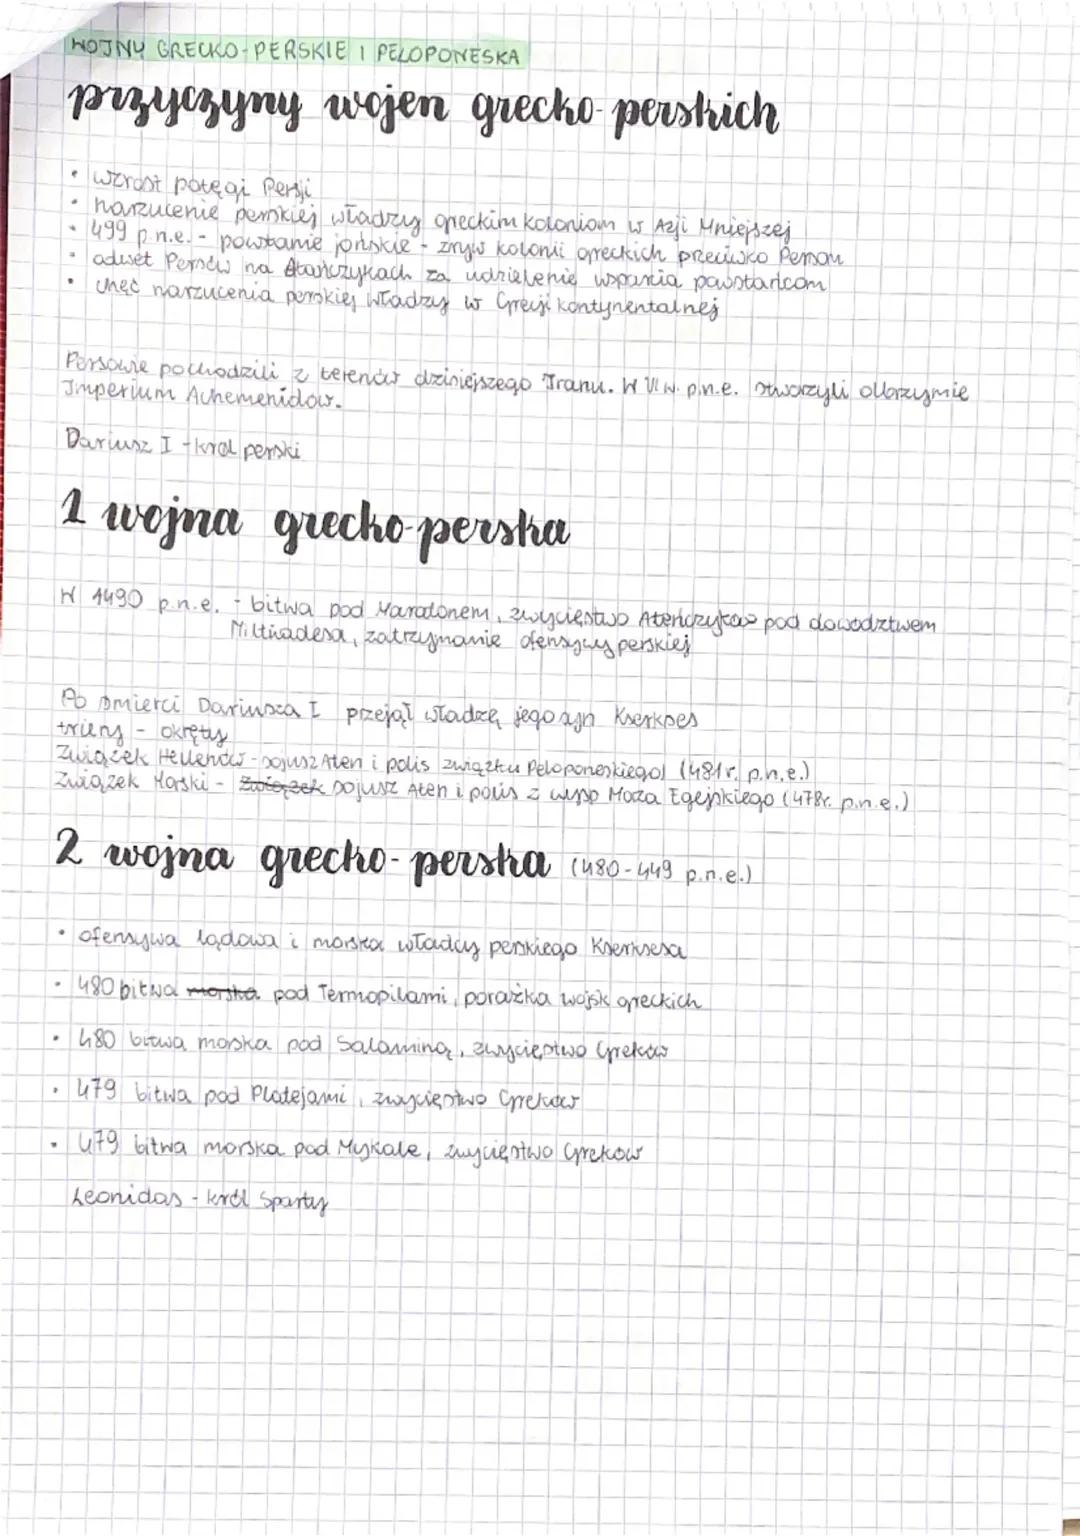 WOJNY GRECKO-PERSKIE I PELOPONESKA
przyczyny wojen grecko-perskich
• wzrost potęgi Persji
• narzucenie perskiej władzy greckim koloniom w Azji Mniejszej
• 499 p.n.e. - powstanie jońskie - zryw kolonii greckich przeciwko Persom
• odwet Persów na Ateńczykach za udzielenie wsparcia powstańcom
• chęć narzucenia perskiej władzy w Grecji kontynentalnej
Persowie pochodzili z terenów dzisiejszego Iranu. W VI w. p.n.e. stworzyli olbrzymie
Imperium Achemenidów.
Dariusz I - król perski
1 wojna grecko-perska
W 1490 p.n.e. - bitwa pod Maratonem, zwycięstwo Ateńczyków pod dowództwem
Miltiadesa, zatrzymanie ofensywy perskiej
Po śmierci Dariusza I przejął władzę jego syn Kserkses
triery - okręty
Związek Hellenów - sojusz Aten i polis związku Peloponeskiego (481 r. p.n.e.)
Związek Morski - Związek sojusz Aten i polis z wysp Morza Egejskiego (478r. p.n.e.)
2 wojna grecko-perska (480-449 p.n.e.)
• ofensywa lądowa i morska władcy perskiego Kserksesa
• 480 bitwa morska pod Termopilami, porażka wojsk greckich
• 480 bitwa morska pod Salaminą, zwycięstwo Greków
• 479 bitwa pod Platejami, zwycięstwo Greków
• 479 bitwa morska pod Mykale, zwycięstwo Greków
Leonidas - król Sparty